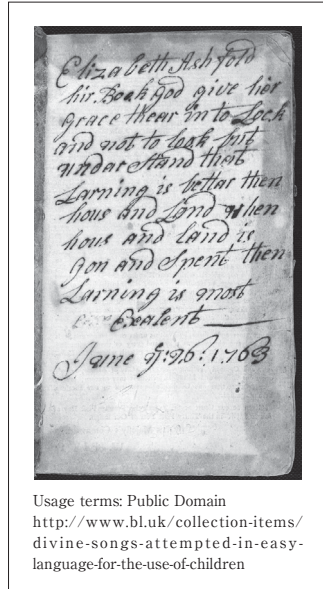 Elizabeth Ashfold
hir Book god give hir
grace thear in to Lock
and not to look but
undar Stand that
Larning is bettar then
hous and Land when
hous and land is
gon and Spent then
Larning is most
Exalent
June ye: 26: 1763
Usage terms: Public Domain
http://www.bl.uk/collection-items/
divine-songs-attempted-in-easy-
language-for-the-use-of-children